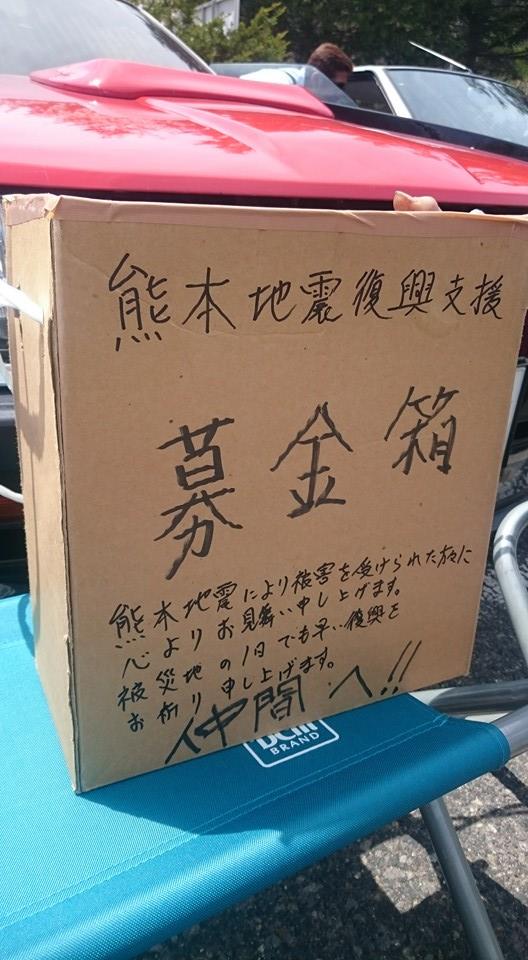 熊本地震復興支援
募金箱
熊本地震により被害を受けられた方々に
心よりお見舞い申し上げます。
被災地の1日でも早い復興を
お祈り申し上げます。
仲間へ!!
DCM
BRAND